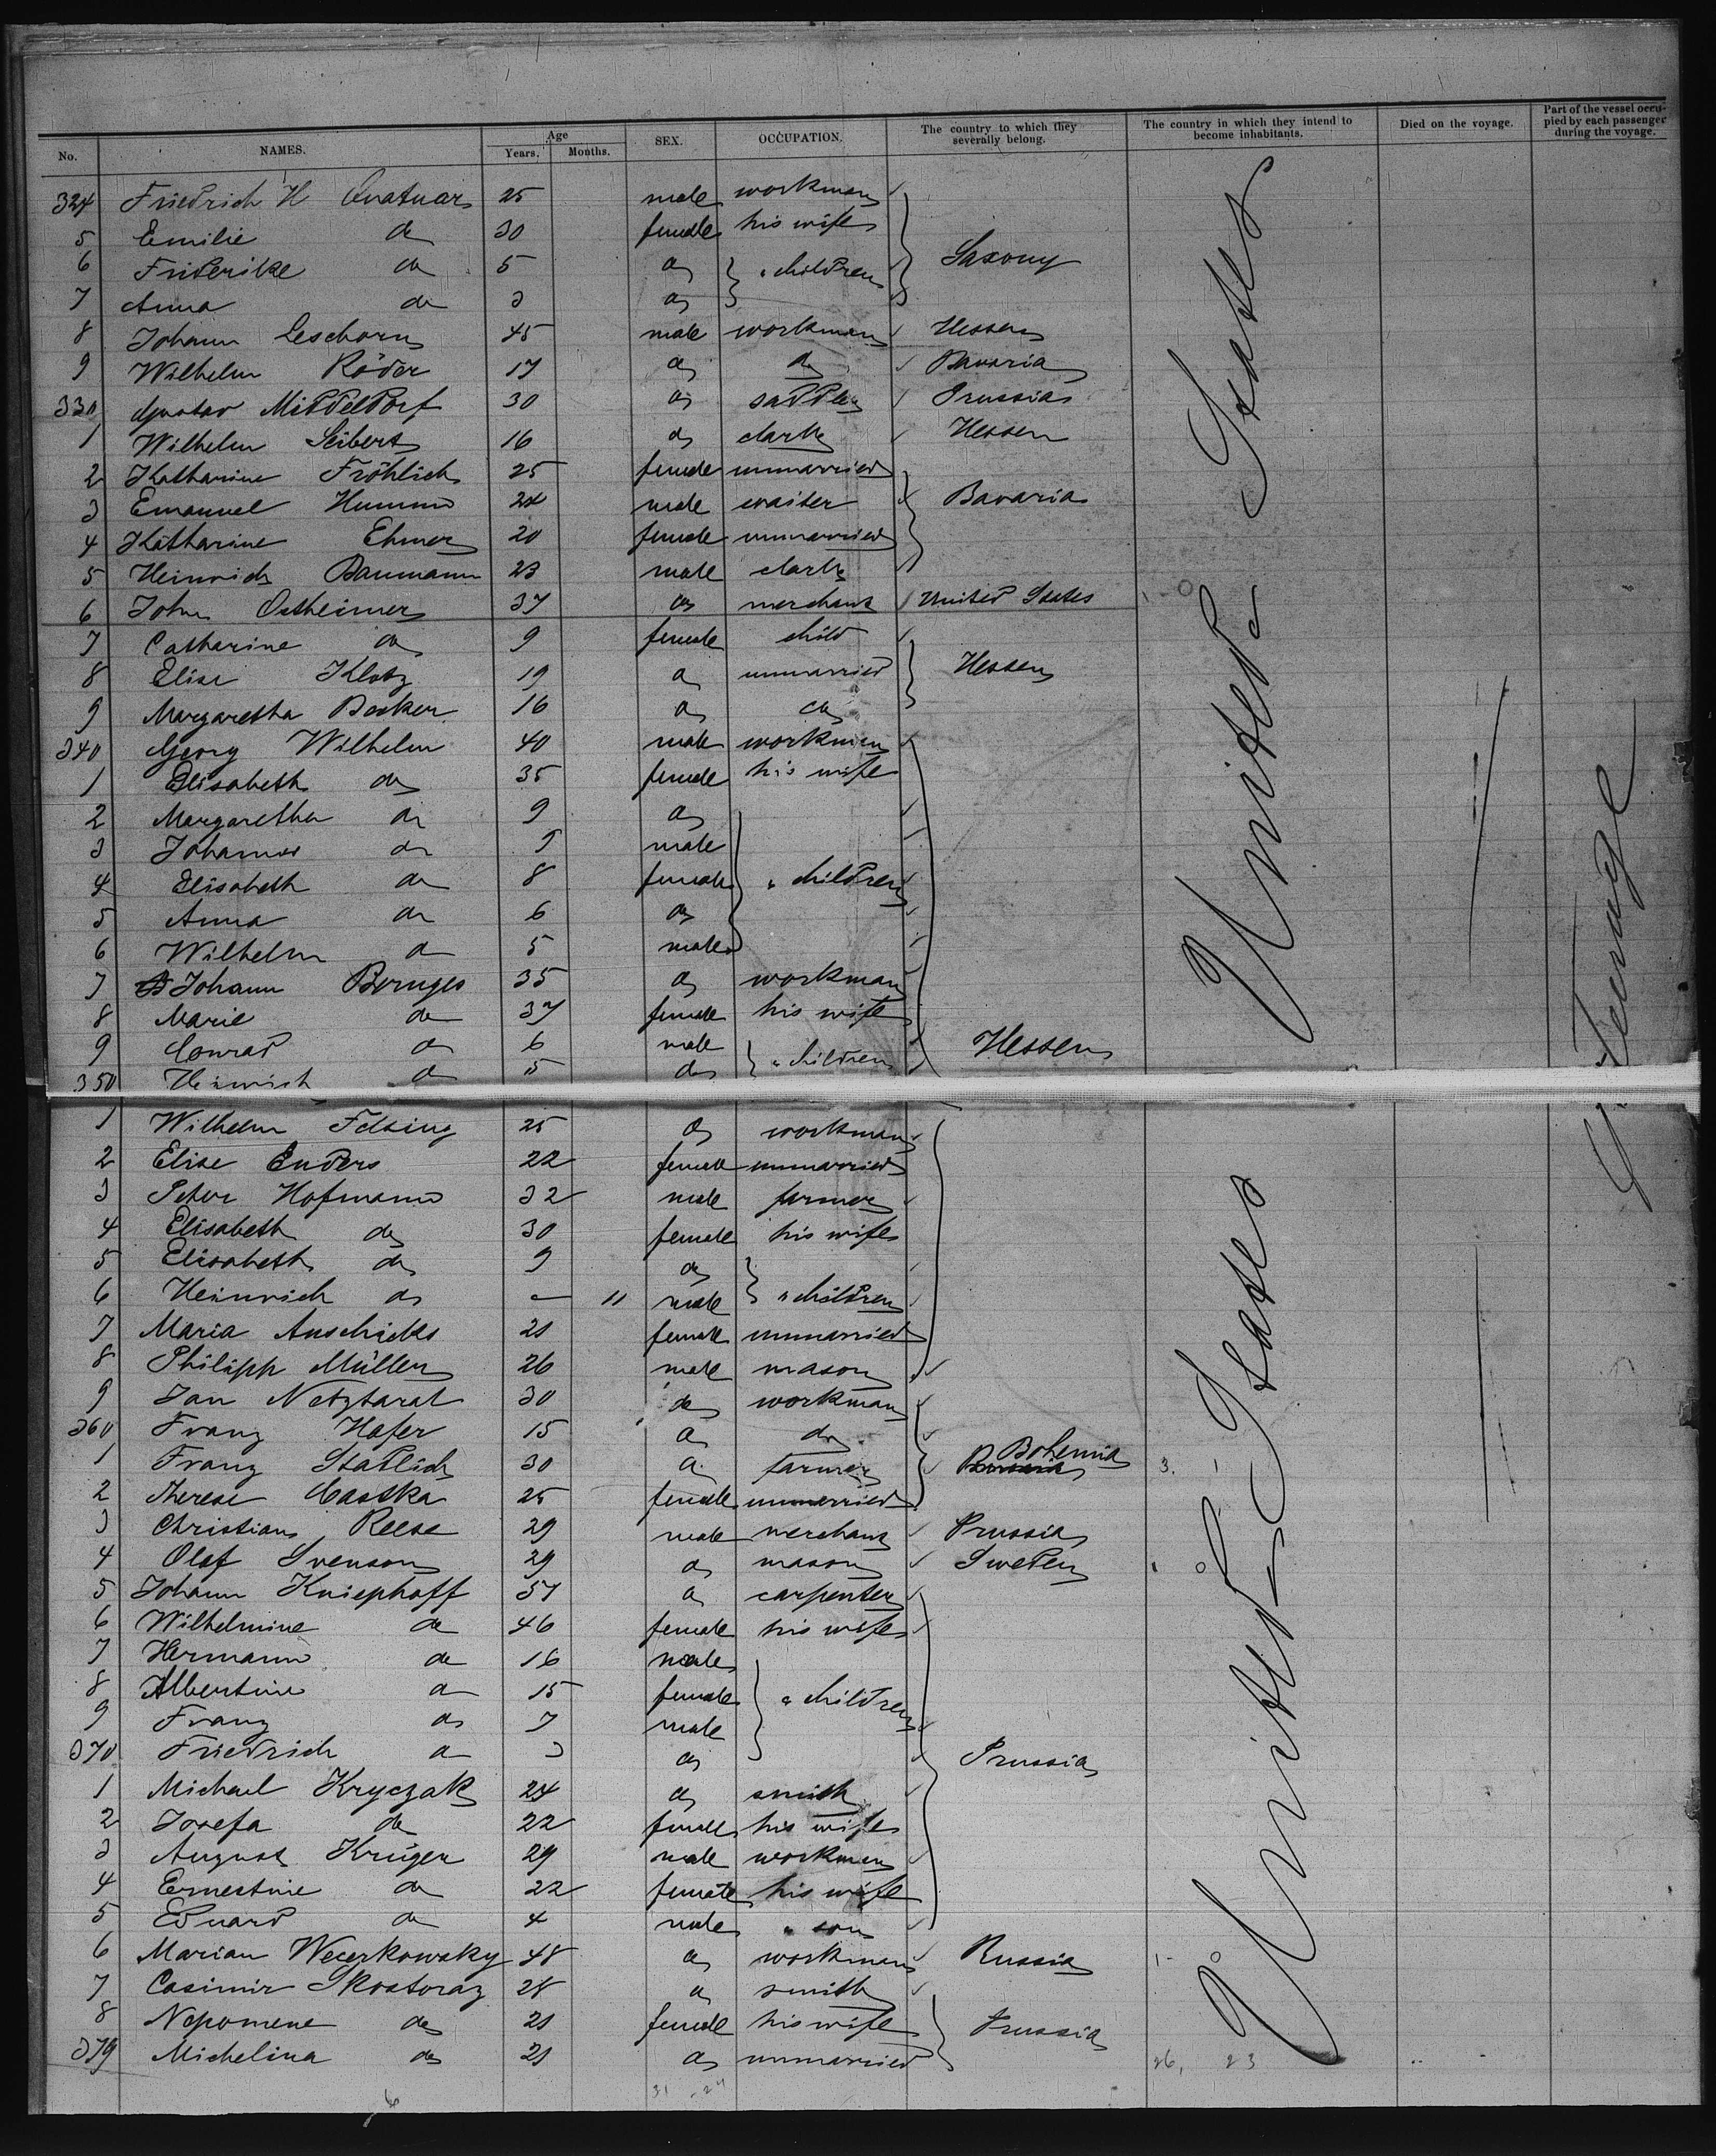 No. NAMES. Age Years. Months. SEX. OCCUPATION. The country to which they severally belong. The country in which they intend to become inhabitants. Died on the voyage. Part of the vessel occupied by each passenger during the voyage.
324 Friedrich H Quatuar 25 male workman
5 Emilie do 30 female his wife
6 Friderike do 5 do " children Saxony
7 Anna do 3 do
8 Johann Leschorn 45 male workman Hessen
9 Wilhelm Röder 17 do do Bavaria
330 Gustav Middeldorf 30 do saddler Prussia
1 Wilhelm Seibert 16 do clark Hessen
2 Katharine Fröhlich 25 female unmarried
3 Emanuel Humm 24 male waiter Bavaria
4 Katharine Ehmer 20 female unmarried
5 Heinrich Baumann 23 male clark
6 John Ostheimer 37 do merchant United States
7 Catharine do 9 female child
8 Elise Klotz 19 do unmarried Hessen
9 Margaretha Becker 16 do do
340 Georg Wilhelm 40 male workman
1 Elisabeth do 35 female his wife
2 Margaretha do 9 do
3 Johannes do 9 male
4 Elisabeth do 8 female " children
5 Anna do 6 do
6 Wilhelm do 5 male
7 Johann Bernges 35 do workman
8 Marie do 37 female his wife
9 Conrad do 6 male " children Hessen
350 Heinrich do 5 do
1 Wilhelm Felsing 25 do workman
2 Elise Enders 22 female unmarried
3 Peter Hofmann 32 male farmer
4 Elisabeth do 30 female his wife
5 Elisabeth do 9 do
6 Heinrich do — 11 male " children
7 Maria Auschicks 21 female unmarried
8 Philipp Müller 26 male mason
9 Jan Netztaral 30 do workman
360 Franz Hofer 15 do do
1 Franz Stadlich 30 do farmer Bohemia
2 Therese Castka 25 female unmarried
3 Christian Reese 29 male merchant Prussia
4 Olaf Svenson 29 do mason Sweden
5 Johann Kniephoff 57 do carpenter
6 Wilhelmine do 46 female his wife
7 Hermann do 16 male
8 Albertine do 15 female " children
9 Franz do 7 male
370 Friedrich do 3 do Prussia
1 Michael Kryczak 24 do smith
2 Josefa do 22 female his wife
3 August Krüger 29 male workman
4 Ernestine do 22 female his wife
5 Eduard do 4 male " son
6 Marian Wecerkowsky 48 do workman Russia
7 Casimir Skostoraz 28 do smith
8 Nepomene do 21 female his wife Prussia
379 Michelina do 21 do unmarried
United States
United States
Steerage
26, 23